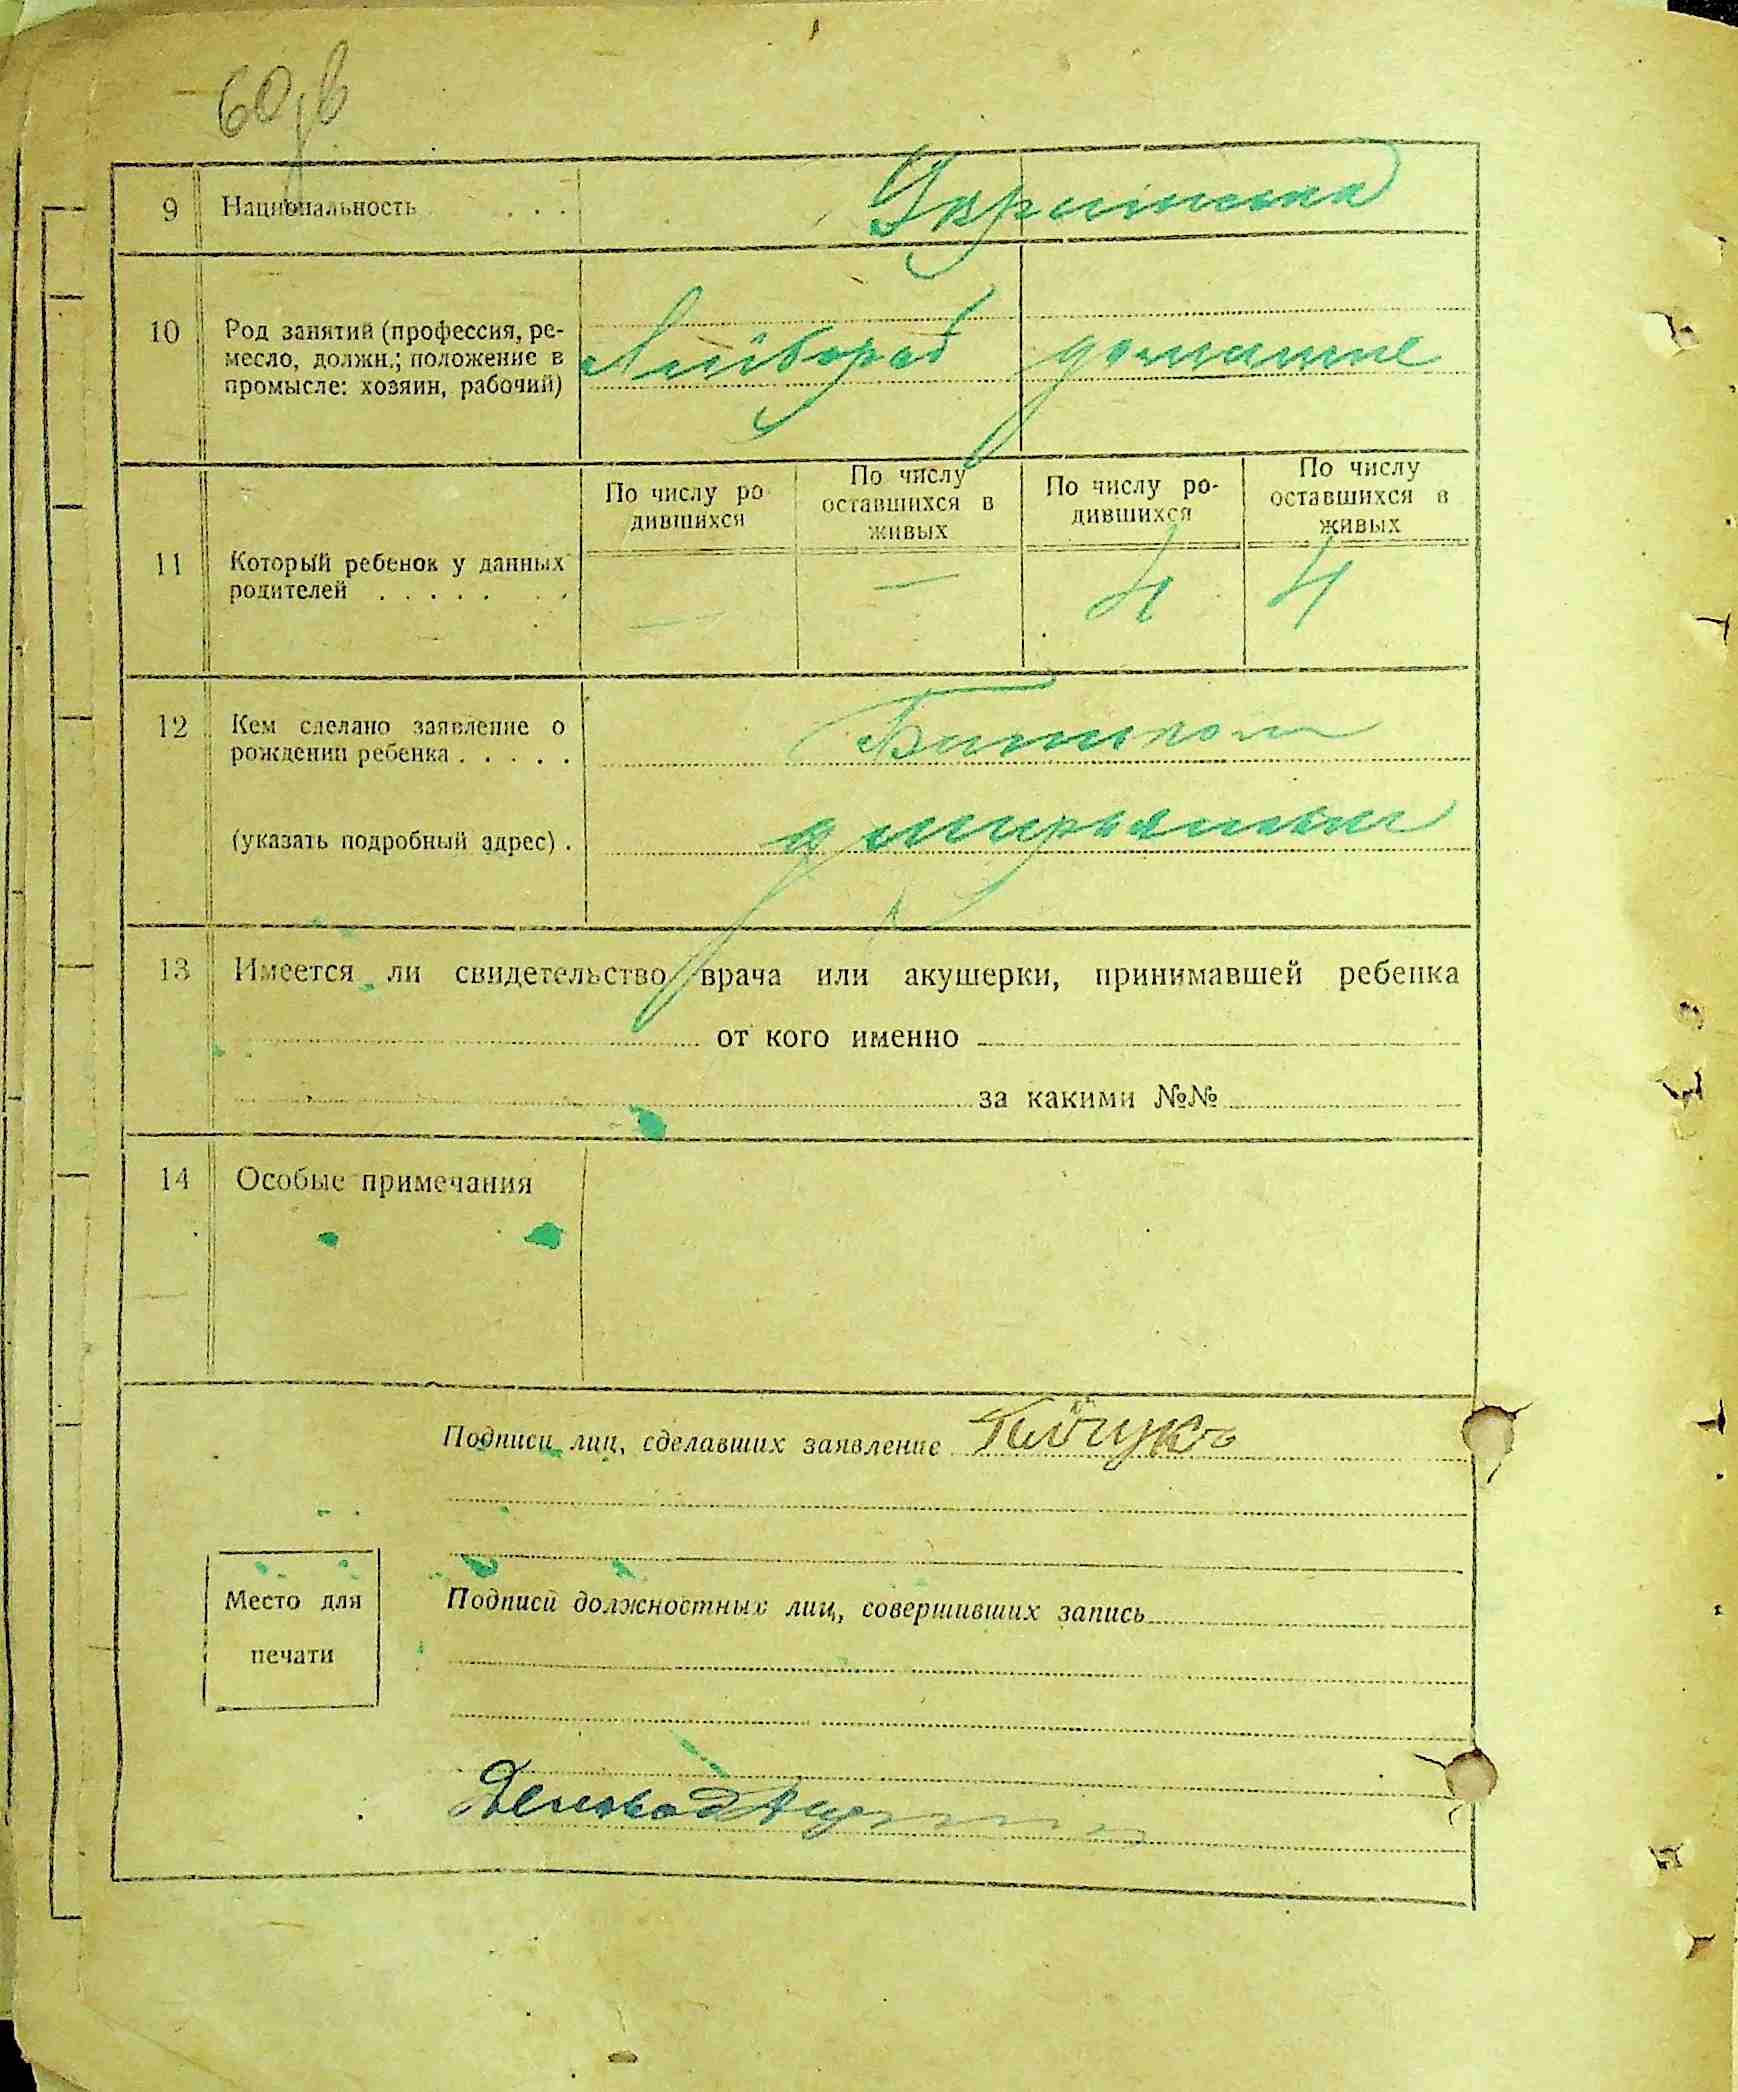 9 Национальность . . .
Украинка
10 Род занятий (профессия, ре-
месло, должн.; положение в
промысле: хозяин, рабочий)
домашние
11 Который ребенок у данных
родителей . . . . . . .
По числу ро-
дившихся
—
По числу
оставшихся в
живых
—
По числу ро-
дившихся
4
По числу
оставшихся в
живых
4
12 Кем сделано заявление о
рождении ребенка . . . . .
(указать подробный адрес) .
13 Имеется ли свидетельство врача или акушерки, принимавшей ребенка
от кого именно
за какими №№
14 Особые примечания
Подписи лиц, сделавших заявление
Место для
печати
Подписи должностных лиц, совершивших запись